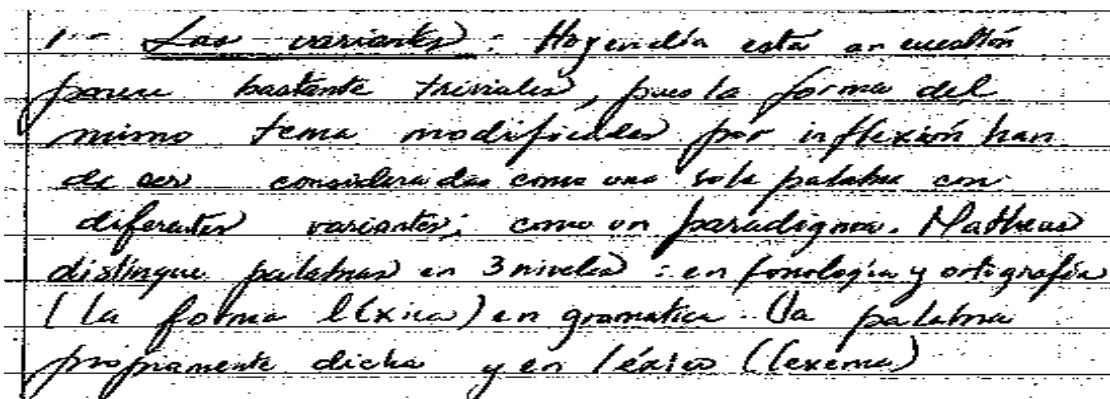 1.- Las variantes: Hoy en día esta cuestión
parece bastante triviales, pues la forma del
mismo tema modificadas por inflexión han
de ser consideradas como una sola palabra con
diferentes variantes; como un paradigma. Matheus
distingue palabras en 3 niveles: en fonología y ortografía
(la forma léxica) en gramática. (la palabra
propiamente dicha y en léxico (lexema)